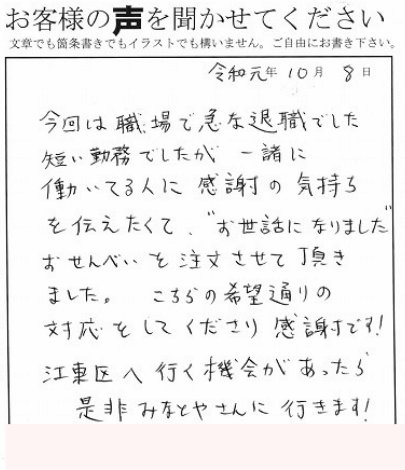 お客様の声を聞かせてください
文章でも箇条書きでもイラストでも構いません。ご自由にお書き下さい。
令和元年 10月 8日
今回は職場で急な退職でした
短い勤務でしたが 一諸に
働いてる人に 感謝の気持ち
を伝えたくて、"お世話になりました"
おせんべいを注文させて頂き
ました。 こちらの希望通りの
対応をしてくださり 感謝です!
江東区へ行く機会があったら
是非みなとやさんに行きます!